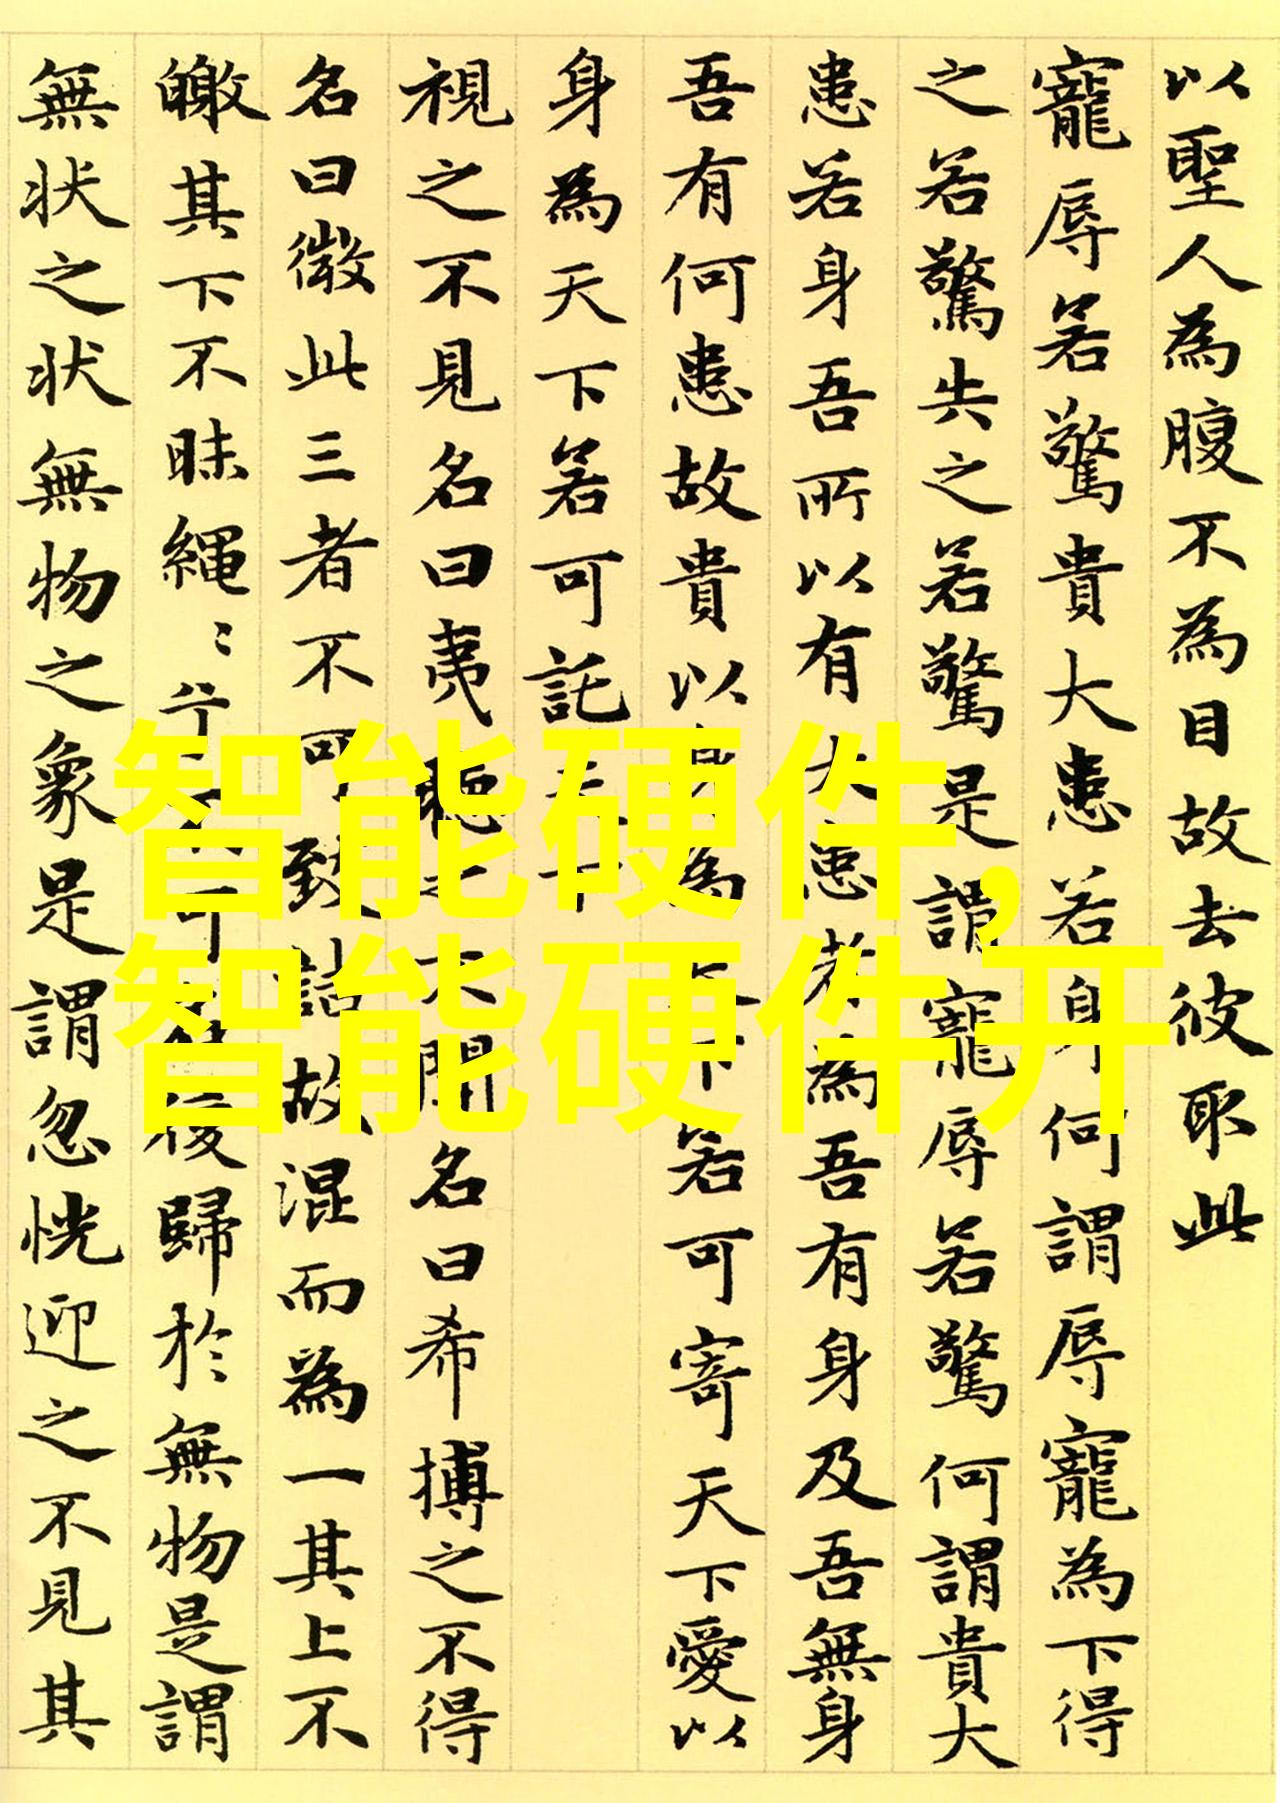 以聖人為腹不為目故去彼取此
寵辱若驚貴大患若身何謂辱寵為下得
之若驚失之若驚是謂寵辱若驚何謂貴大
患若身吾所以有大患者為吾有身及吾無身
吾有何患故貴以身為天下若可寄天下愛以
身為天下若可託天下
視之不見名曰夷聽之不聞名曰希搏之不得
名曰微此三者不可致詰故混而為一其上不
皦其下不昧繩〻兮不可名復歸於無物是謂
無状之状無物之象是謂忽恍迎之不見其
智能硬件,
智能硬件开